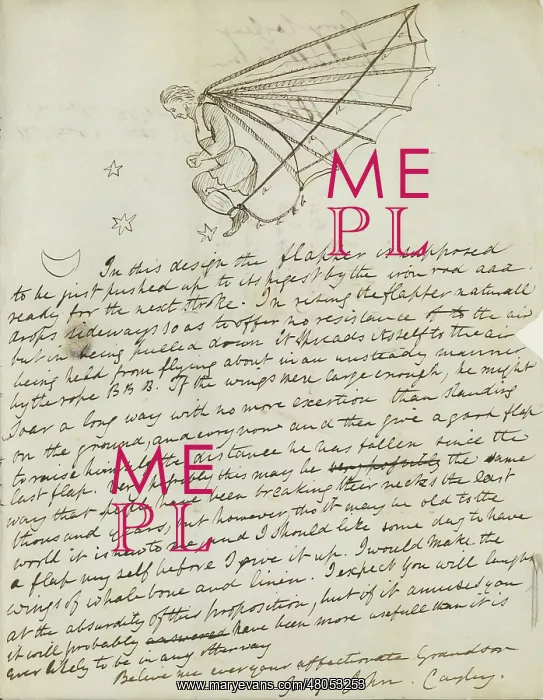 In this design the flapper is supposed
to be just pushed up to its highest by the iron rod aaa.
ready for the next stroke. In rising the flapper naturall
drops sideways so as to offer no resistance to the air
but in being pulled down it spreads itself to the air
being held from flying about in an unsteady manner
by the rope BBB. If the wings were large enough, he might
soar a long way with no more exertion than standing
on the ground, and every now and then give a good flap
to raise himself the distance he was fallen since the
last flap. Very probably this may be very probably the same
way that people have been breaking their necks the last
thousand years, but however, tho it may be old to the
world it is new to me and I should like some day to have
a flap my self before I give it up. I would make the
wings of whale bone and linen. I expect you will laugh
at the absurdity of this proposition, but if it amuses you
it will probably answered have been more usefull than it is
ever likely to be in any other way
Believe me ever your affectionate Grandson
Cayley.
ME
PL
ME
PL
www.maryevans.com/48053253